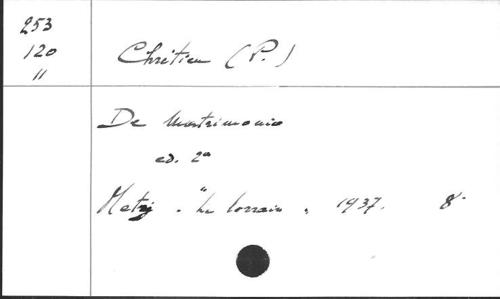 253
120
11
Chrétien (P.)
De Matrimonio
ed. 2a
Metz, "Le Lorrain", 1937. 8°